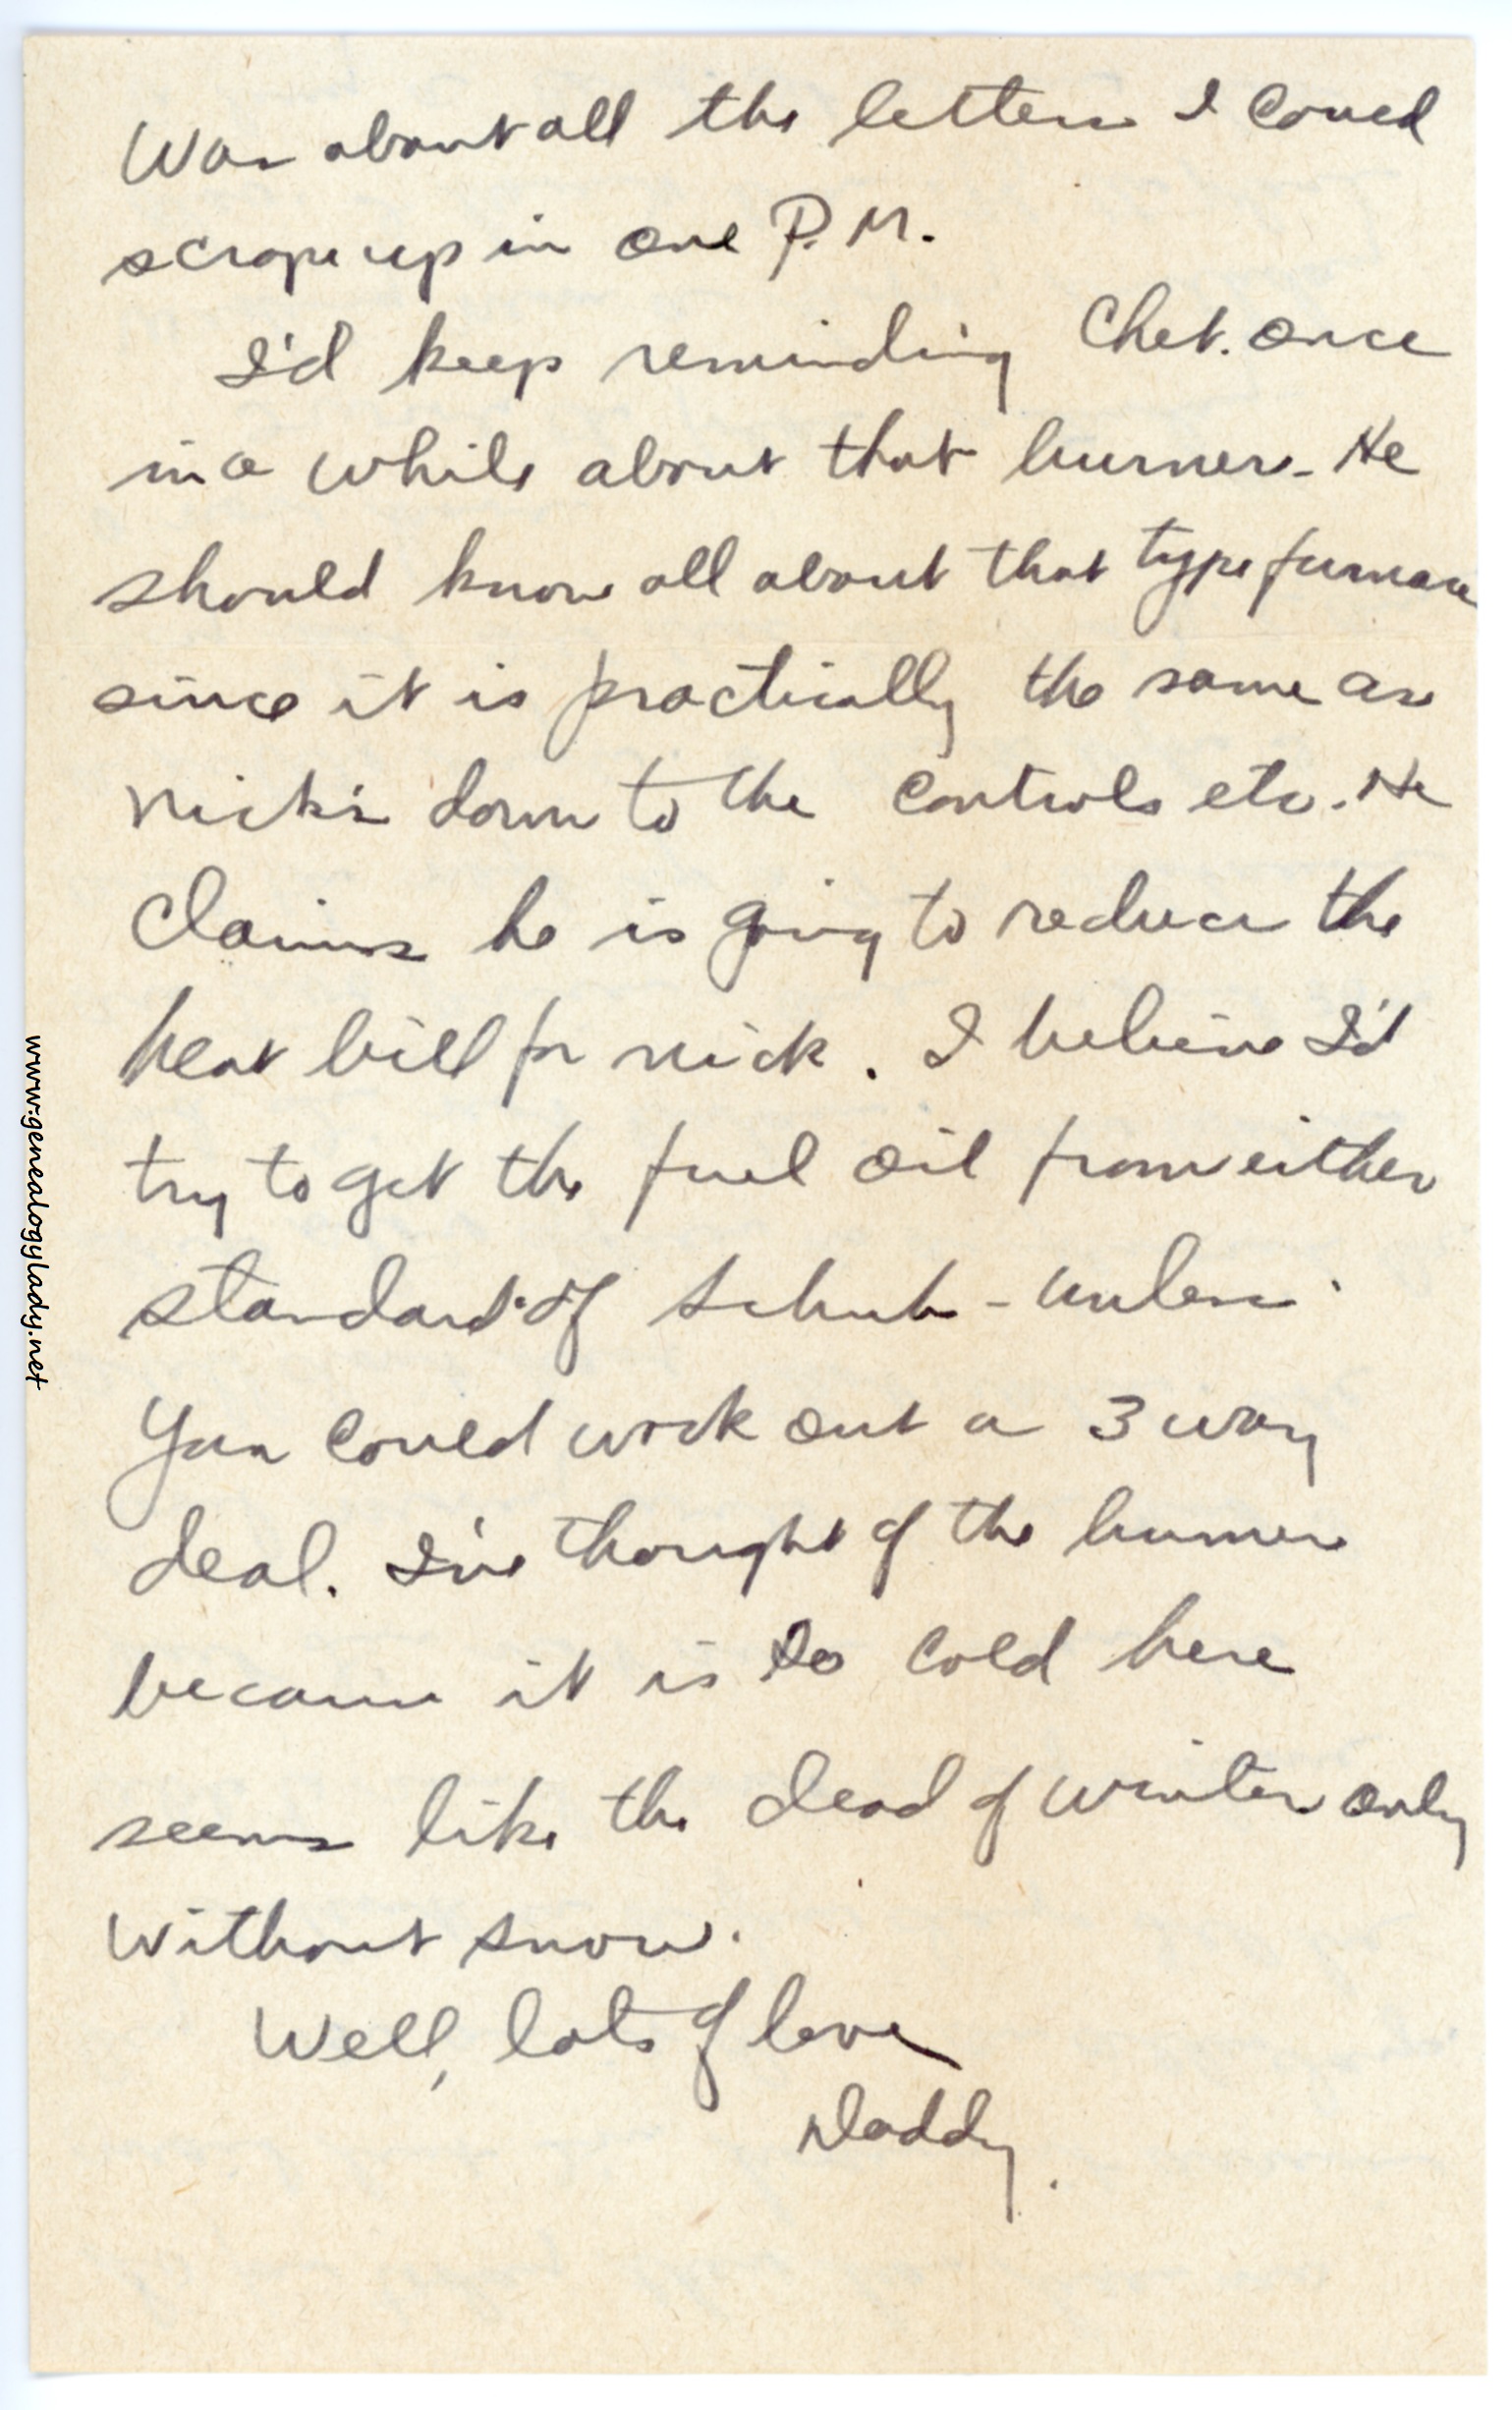 Was about all the letters I could
scrape up in one P.M.
I'd keep reminding Chet. once
in a while about that burner. He
should know all about that type furnace
since it is practically the same as
Nick's down to the controls etc. He
claims he is going to reduce the
heat bill for Nick. I believe I'd
try to get the fuel oil from either
standard of - unless
You could work out a 3 way
deal. I've thought of the burner
because it is so cold here
seems like the dead of winter only
without snow.
Well, lots of love
Daddy.
www.genealogylady.net